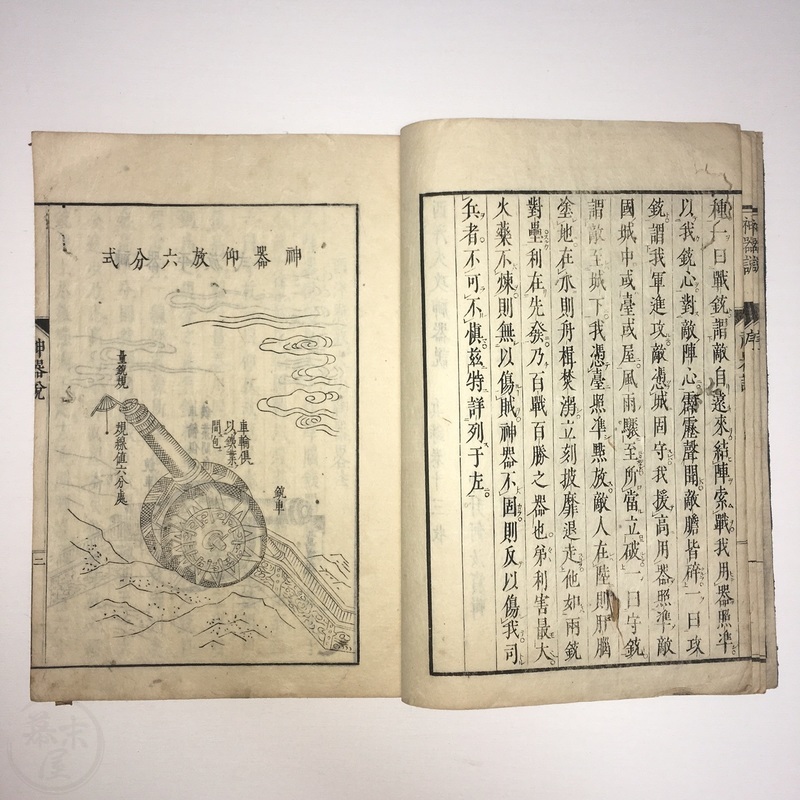 種一曰戰銃謂敵自遠來結陣索戰我用器照準
以我銃心對敵陣心霹靂聲開敵膽皆碎一曰攻
銃謂我軍進攻敵憑城固守我援高用器照準敵
國城中或臺或屋風雨驟至所當立破一曰守銃
謂敵至城下我憑臺照準點放敵人在陸則肝腦
塗地在水則舟楫焚溺立刻披靡退走他如兩銃
對壘利在先發乃百戰百勝之器也第利害最大
火藥不煉則無以傷賊神器不固則反以傷我司
兵者不可不慎茲特詳列于左
神器仰放六分式
量銃規
規線值六分處
車輪俱
以鐵葉
間包
銃車
神器說
二
神器譜
幕末屋